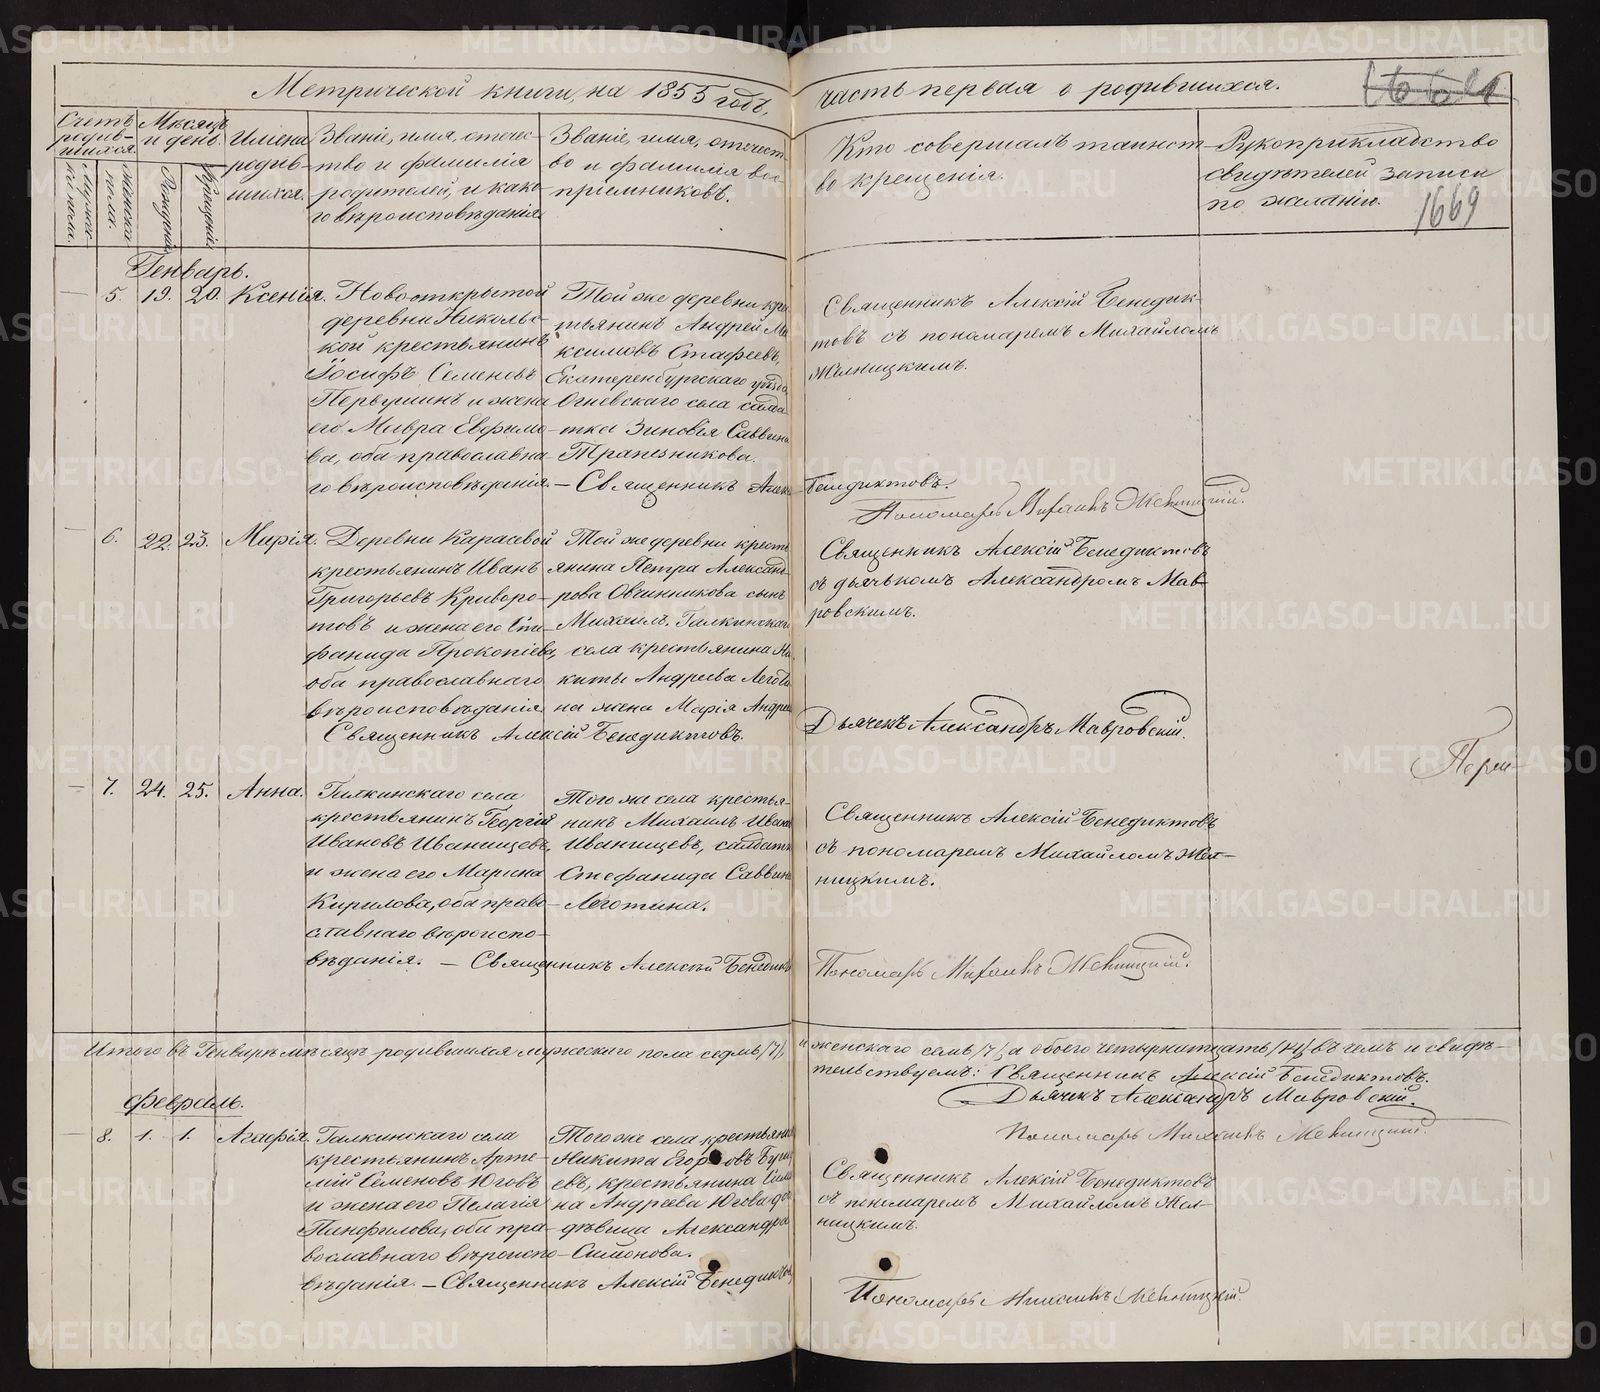 Метрической книги, на 1855 годъ, часть первая о родившихся.
1669
Счетъ родив-
шихся.
Мѣсяцъ
и день.
Имена
родив-
шихся.
Званіе, имя, отечес-
тво и фамилія
родителей, и како-
го вѣроисповѣданія
Званіе, имя, отечест-
во и фамилія вос-
пріемниковъ.
Кто совершалъ таинст-
во крещенія.
Рукоприкладство
свидѣтелей записи
по желанію.
Мужеска-
го пола.
Женска
пола.
Рожденія
Крещенія
Генварь.
5. 19. 20. Ксенія.
Новооткрытой
деревни Николь-
кой крестьянинъ
Іосифъ Семеновъ
Первушинъ и жена
его Мавра Евфимо-
ва, оба православна-
го вѣроисповѣданія.
Той же деревни кре
тьянинъ Андрей Ма
ксимовъ Стафеевъ,
Екатеренбургскаго уѣзда
Огневскаго села солда
тка Зиновія Саввина
Трапезникова.
Священникъ Алексій Бенедик-
товъ съ пономаремъ Михайломъ
Желницкимъ.
— Священникъ Алек Бенедиктовъ.
Пономарь Михаилъ Желницкій.
6. 22. 23. Марія.
Деревни Карасевой
крестьянинъ Иванъ
Григорьевъ Криворо-
товъ и жена его Сте-
фанида Прокопіева,
оба православнаго
вѣроисповѣданія
Той же деревни кресть
янина Петра Александ
рова Овчинникова сынъ
Михаилъ. Галкинскаго
села крестьянина Ни
киты Андреева Леготи
на жена Марія Андре
Священникъ Алексій Бенедиктовъ
съ дьячькомъ Александромъ Мав-
ровскимъ.
Священникъ Алексій Бенедиктовъ.
Дьячекъ Александръ Мавровскій.
7. 24. 25. Анна.
Галкинскаго села
крестьянинъ Георгій
Ивановъ Иванищевъ,
и жена его Марина
Кирилова, оба право-
славнаго вѣроиспо-
вѣданія.
Того же села крестья-
нинъ Михаилъ Ивано
Иванищевъ, салдатк
Стефанида Саввина
Леготина.
Священникъ Алексій Бенедиктовъ
съ пономаремъ Михайломъ Жел-
ницкимъ.
— Священникъ Алексѣй Бенедикт
Пономарь Михаилъ Желницкій.
Итого въ Генварѣ мѣсяцѣ родившихся мужескаго пола седмь /7/, и женскаго семь /7/, а обоего четырнатцать /14/, въ чемъ и свидѣ-
тельствуемъ: Священникъ Алексій Бенедиктовъ.
Дьячекъ Александръ Мавровскій.
Пономарь Михаилъ Желницкій.
Февраль.
8. 1. 1. Агафія.
Галкинскаго села
крестьянинъ Арте-
мій Семеновъ Юговъ
и жена его Пелагія
Панфилова, оба пра-
вославнаго вѣроиспо-
вѣданія.
Того же села крестьяни
Никита Егоровъ
евъ, крестьянина Симо
на Андреева Югова до
дѣвица Александра
Симонова.
Священникъ Алексій Бенедиктовъ
съ пономаремъ Михайломъ Жел-
ницкимъ.
— Священникъ Алексій Бенедиктов
Пономарь Михаилъ Желницкій.
METRIKI.GASO-URAL.RU